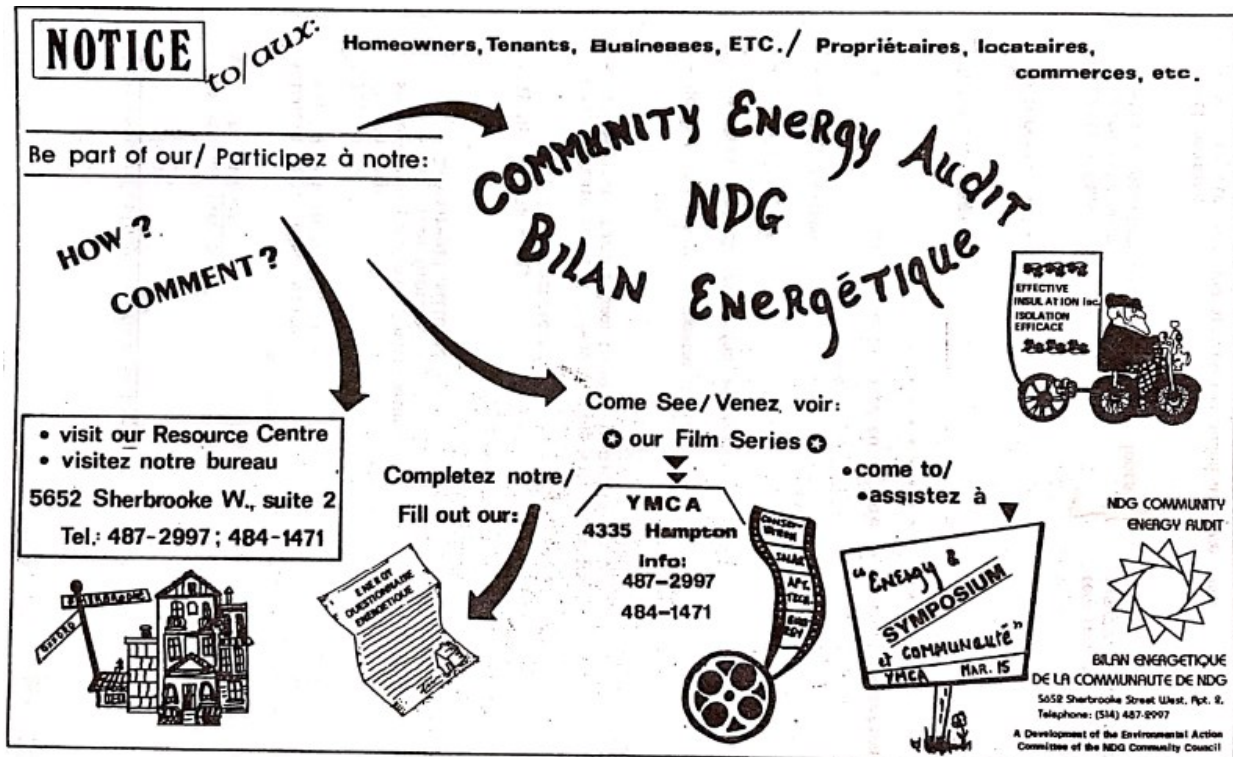 NOTICE
to/aux:
Homeowners, Tenants, Businesses, ETC./ Propriétaires, locataires,
commerces, etc.
Be part of our/ Participez à notre:
COMMUNITY ENERGY AUDIT
NDG
BILAN ENERGÉTIQUE
HOW?
COMMENT?
EFFECTIVE
INSULATION inc.
ISOLATION
EFFICACE
• visit our Resource Centre
• visitez notre bureau
5652 Sherbrooke W., suite 2
Tel.: 487-2997; 484-1471
Completez notre/
Fill out our:
ENERGY
QUESTIONNAIRE
ENERGETIQUE
Come See/Venez voir:
✪ our Film Series ✪
YMCA
4335 Hampton
Info:
487-2997
484-1471
CONSER-
VATION
SOLAR
APT.
TECH.
•come to/
•assistez à
"ENERGY &
SYMPOSIUM
et COMMUNAUTÉ"
YMCA MAR. 15
NDG COMMUNITY
ENERGY AUDIT
BILAN ENERGETIQUE
DE LA COMMUNAUTE DE NDG
5652 Sherbrooke Street West, Apt. 2,
Telephone: (514) 487-2997
A Development of the Environmental Action
Committee of the NDG Community Council